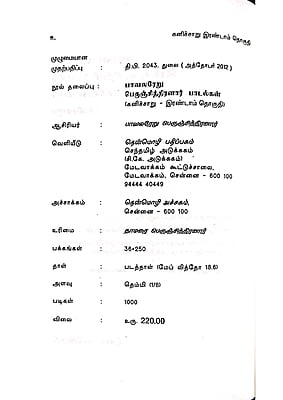 உ
கனிச்சாறு இரண்டாம் தொகுதி
முழுமையான
முதற்பதிப்பு : தி.பி. 2043, துலை (அத்தோபர் 2012)
நூல் தலைப்பு : பாவலரேறு
பெருஞ்சித்திரனார் பாடல்கள்
(கனிச்சாறு - இரண்டாம் தொகுதி)
ஆசிரியர் : பாவலரேறு பெருஞ்சித்திரனார்
வெளியீடு : தென்மொழி பதிப்பகம்
செந்தமிழ் அடுக்ககம்
(சி.கே. அடுக்ககம்)
மேடவாக்கம் கூட்டுச்சாலை,
மேடவாக்கம், சென்னை - 600 100
94444 40449
அச்சாக்கம் : தென்மொழி அச்சகம்,
சென்னை - 600 100
உரிமை : தாமரை பெருஞ்சித்திரனார்
பக்கங்கள் : 36+250
தாள் : படத்தாள் (மேப் லித்தோ 18.6)
அளவு : தெம்மி (1/8)
படிகள் : 1000
விலை : உரு. 220.00